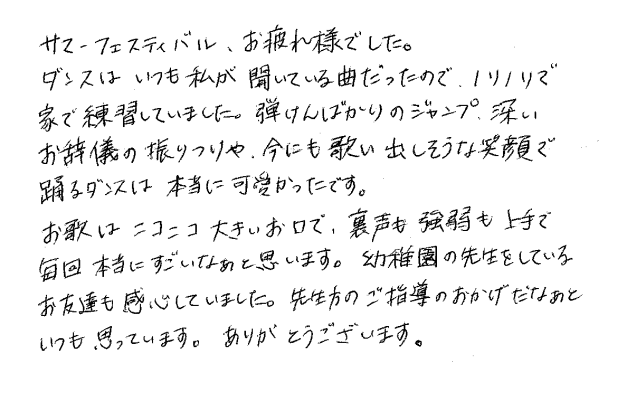 サマーフェスティバル、お疲れ様でした。
ダンスは いつも私が 聞いている曲だったので、ノリノリで
家で練習していました。弾けんばかりのジャンプ、深い
お辞儀の振りつりや、今にも歌い出しそうな笑顔で
踊るダンスは 本当に可愛かったです。
お歌は ニコニコ 大きいお口で、裏声も 強弱も 上手で
毎回 本当にすごいなぁと思います。幼稚園の先生をしている
お友達も感心していました。先生方のご指導のおかげだなぁと
いつも思っています。ありがとうございます。